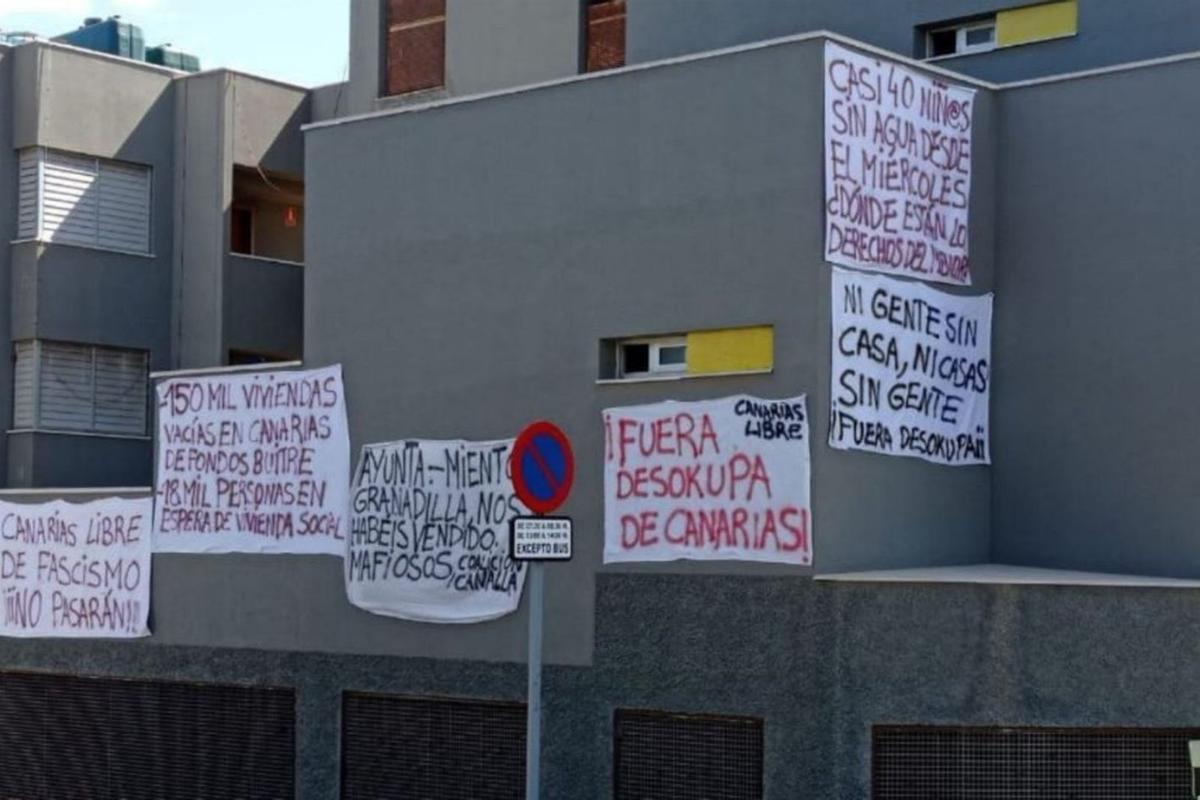 CASI 40 NIÑ@S
SIN AGUA DESDE
EL MIÉRCOLES
¿DÓNDE ESTÁN LO
DERECHOS DEL
NI GENTE SIN
CASA, NI CASAS
SIN GENTE
¡FUERA DESOKUPA!!
-150 MIL VIVIENDAS
VACÍAS EN CANARIAS
DE FONDOS BUITRE
-18 MIL PERSONAS EN
ESPERA DE VIVIENDA SOCIAL
CANARIAS LIBRE
DE FASCISMO
¡¡¡NO PASARÁN!!!
AYUNTA-MIENTO
GRANADILLA, NOS
HABÉIS VENDIDO.
MAFIOSOS COALICIÓN
CANALLA
EXCEPTO BUS
CANARIAS
LIBRE
¡FUERA
DESOKUPA
DE CANARIAS!